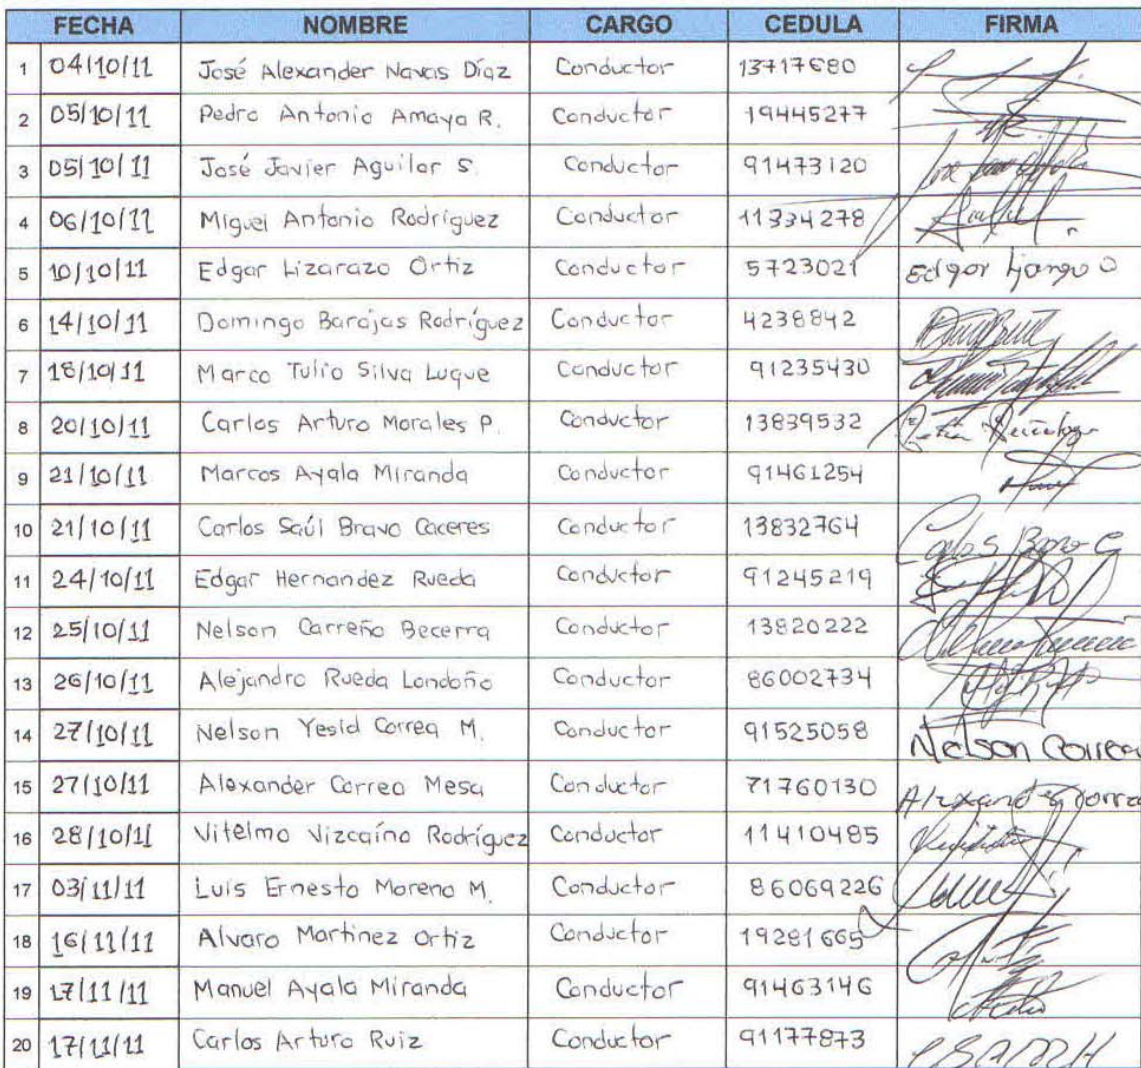 FECHA NOMBRE CARGO CEDULA FIRMA
1 04/10/11 José Alexander Navas Díaz Conductor 13717680
2 05/10/11 Pedro Antonio Amaya R. Conductor 19445277
3 05/10/11 José Javier Aguilar S. Conductor 91473120
4 06/10/11 Miguel Antonio Rodríguez Conductor 11334278
5 10/10/11 Edgar Lizarazo Ortiz Conductor 5723021 Edgar
6 14/10/11 Domingo Barajas Rodríguez Conductor 4238842
7 18/10/11 Marco Tulio Silva Luque Conductor 91235430
8 20/10/11 Carlos Arturo Morales P. Conductor 13839532
9 21/10/11 Marcos Ayala Miranda Conductor 91461254
10 21/10/11 Carlos Saúl Bravo Caceres Conductor 13832764 Carlos Bravo C
11 24/10/11 Edgar Hernandez Rueda Conductor 91245219
12 25/10/11 Nelson Carreño Becerra Conductor 13820222
13 26/10/11 Alejandro Rueda Londoño Conductor 86002734
14 27/10/11 Nelson Yesid Correa M. Conductor 91525058 Nelson Correa
15 27/10/11 Alexander Correa Mesa Conductor 71760130 Alexander Correa
16 28/10/11 Vitelmo Vizcaíno Rodríguez Conductor 11410485
17 03/11/11 Luis Ernesto Moreno M. Conductor 86069226
18 16/11/11 Alvaro Martinez Ortiz Conductor 19281665
19 17/11/11 Manuel Ayala Miranda Conductor 91463146
20 17/11/11 Carlos Arturo Ruiz Conductor 91177873